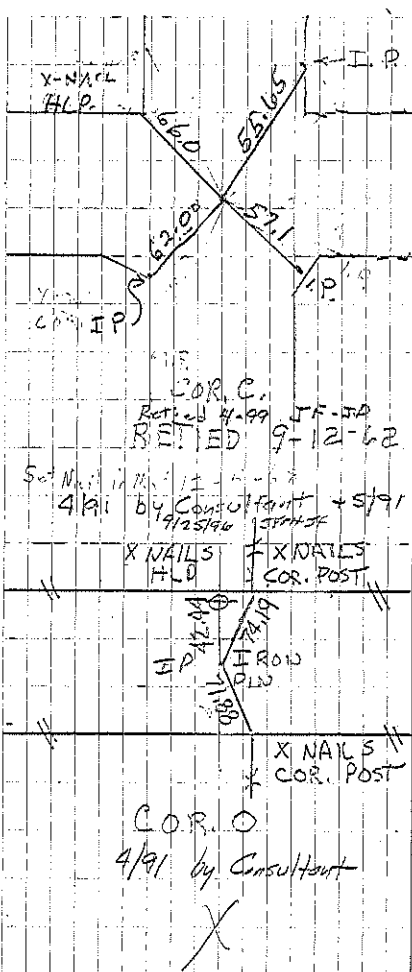 X-NAIL
HLP.
I.P.
66.0
55.65
62.00
57.1
I.P.
I P
COR. C.
Retied 4-99 JF-JP
RETIED 9-12-62
4/91 by Consultant + 5/91
9/25/96
X NAILS
HLD
X NAILS
COR. POST
42.44
74.19
IP
IRON
PIN
71.88
X NAILS
COR. POST
COR. O
4/91 by Consultant
X